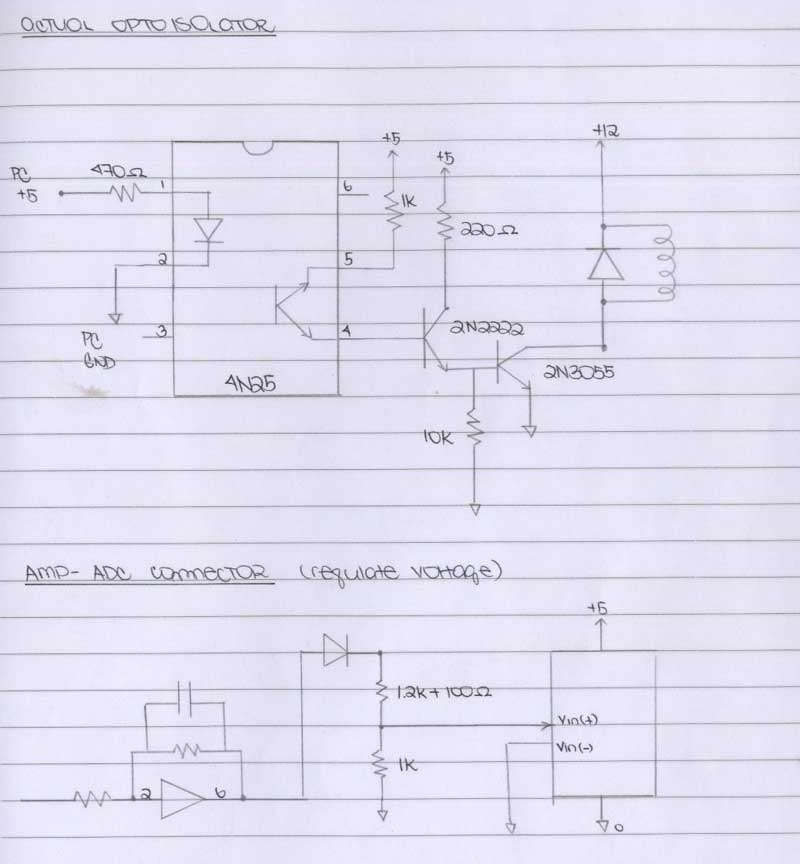 ACTUAL OPTOISOLATOR
PC
+5
470Ω
1
2
3
PC
GND
4N25
6
5
4
+5
1K
+5
220Ω
2N2222
10K
+12
2N3055
AMP-ADC CONNECTOR (regulate voltage)
2
6
1.2K+100Ω
1K
+5
Vin(+)
Vin(-)
0